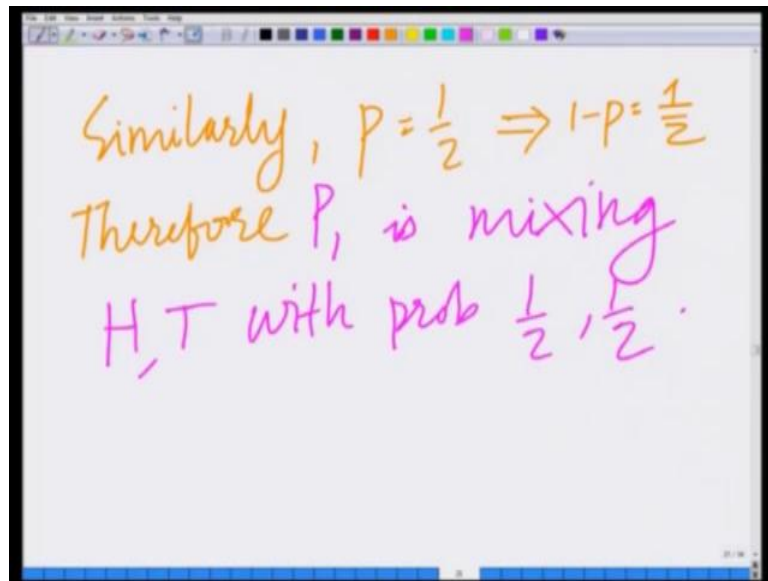 File Edit View Insert Actions Tools Help
Similarly, P = 1/2 ⇒ 1-P = 1/2
Therefore P₁ is mixing
H, T with prob 1/2, 1/2.